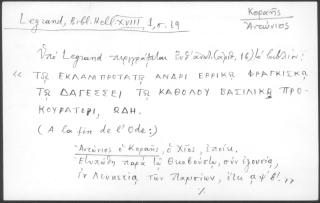 Legrand, Bibl. Hell. XVIII, 1, σ. 19
Κοραῆς
Ἀντώνιος
Ὑπὸ Legrand περιγράφεται ἐνθ' ἀνωτ. (ἀριθ. 16) τὸ βιβλίον:
« ΤΩ ΕΚΛΑΜΠΡΟΤΑΤΩ ΑΝΔΡΙ ΕΡΡΙΚΩ ΦΡΑΓΚΙΣΚΩ
ΤΩ ΔΑΓΕΣΣΕΙ ΤΩ ΚΑΘΟΛΟΥ ΒΑΣΙΛΙΚΩ ΠΡΟ-
ΚΟΥΡΑΤΟΡΙ, ΩΔΗ.
(A la fin de l'Ode:)
Ἀντώνιος ὁ Κοραῆς, ὁ Χῖος, ἐποίει.
Ἐτυπώθη παρὰ τῷ Θιβούστῳ, σὺν ἐξουσίᾳ,
ἐν Λευκετίᾳ τῶν Παρισίων, ἔτει αψβ'. »